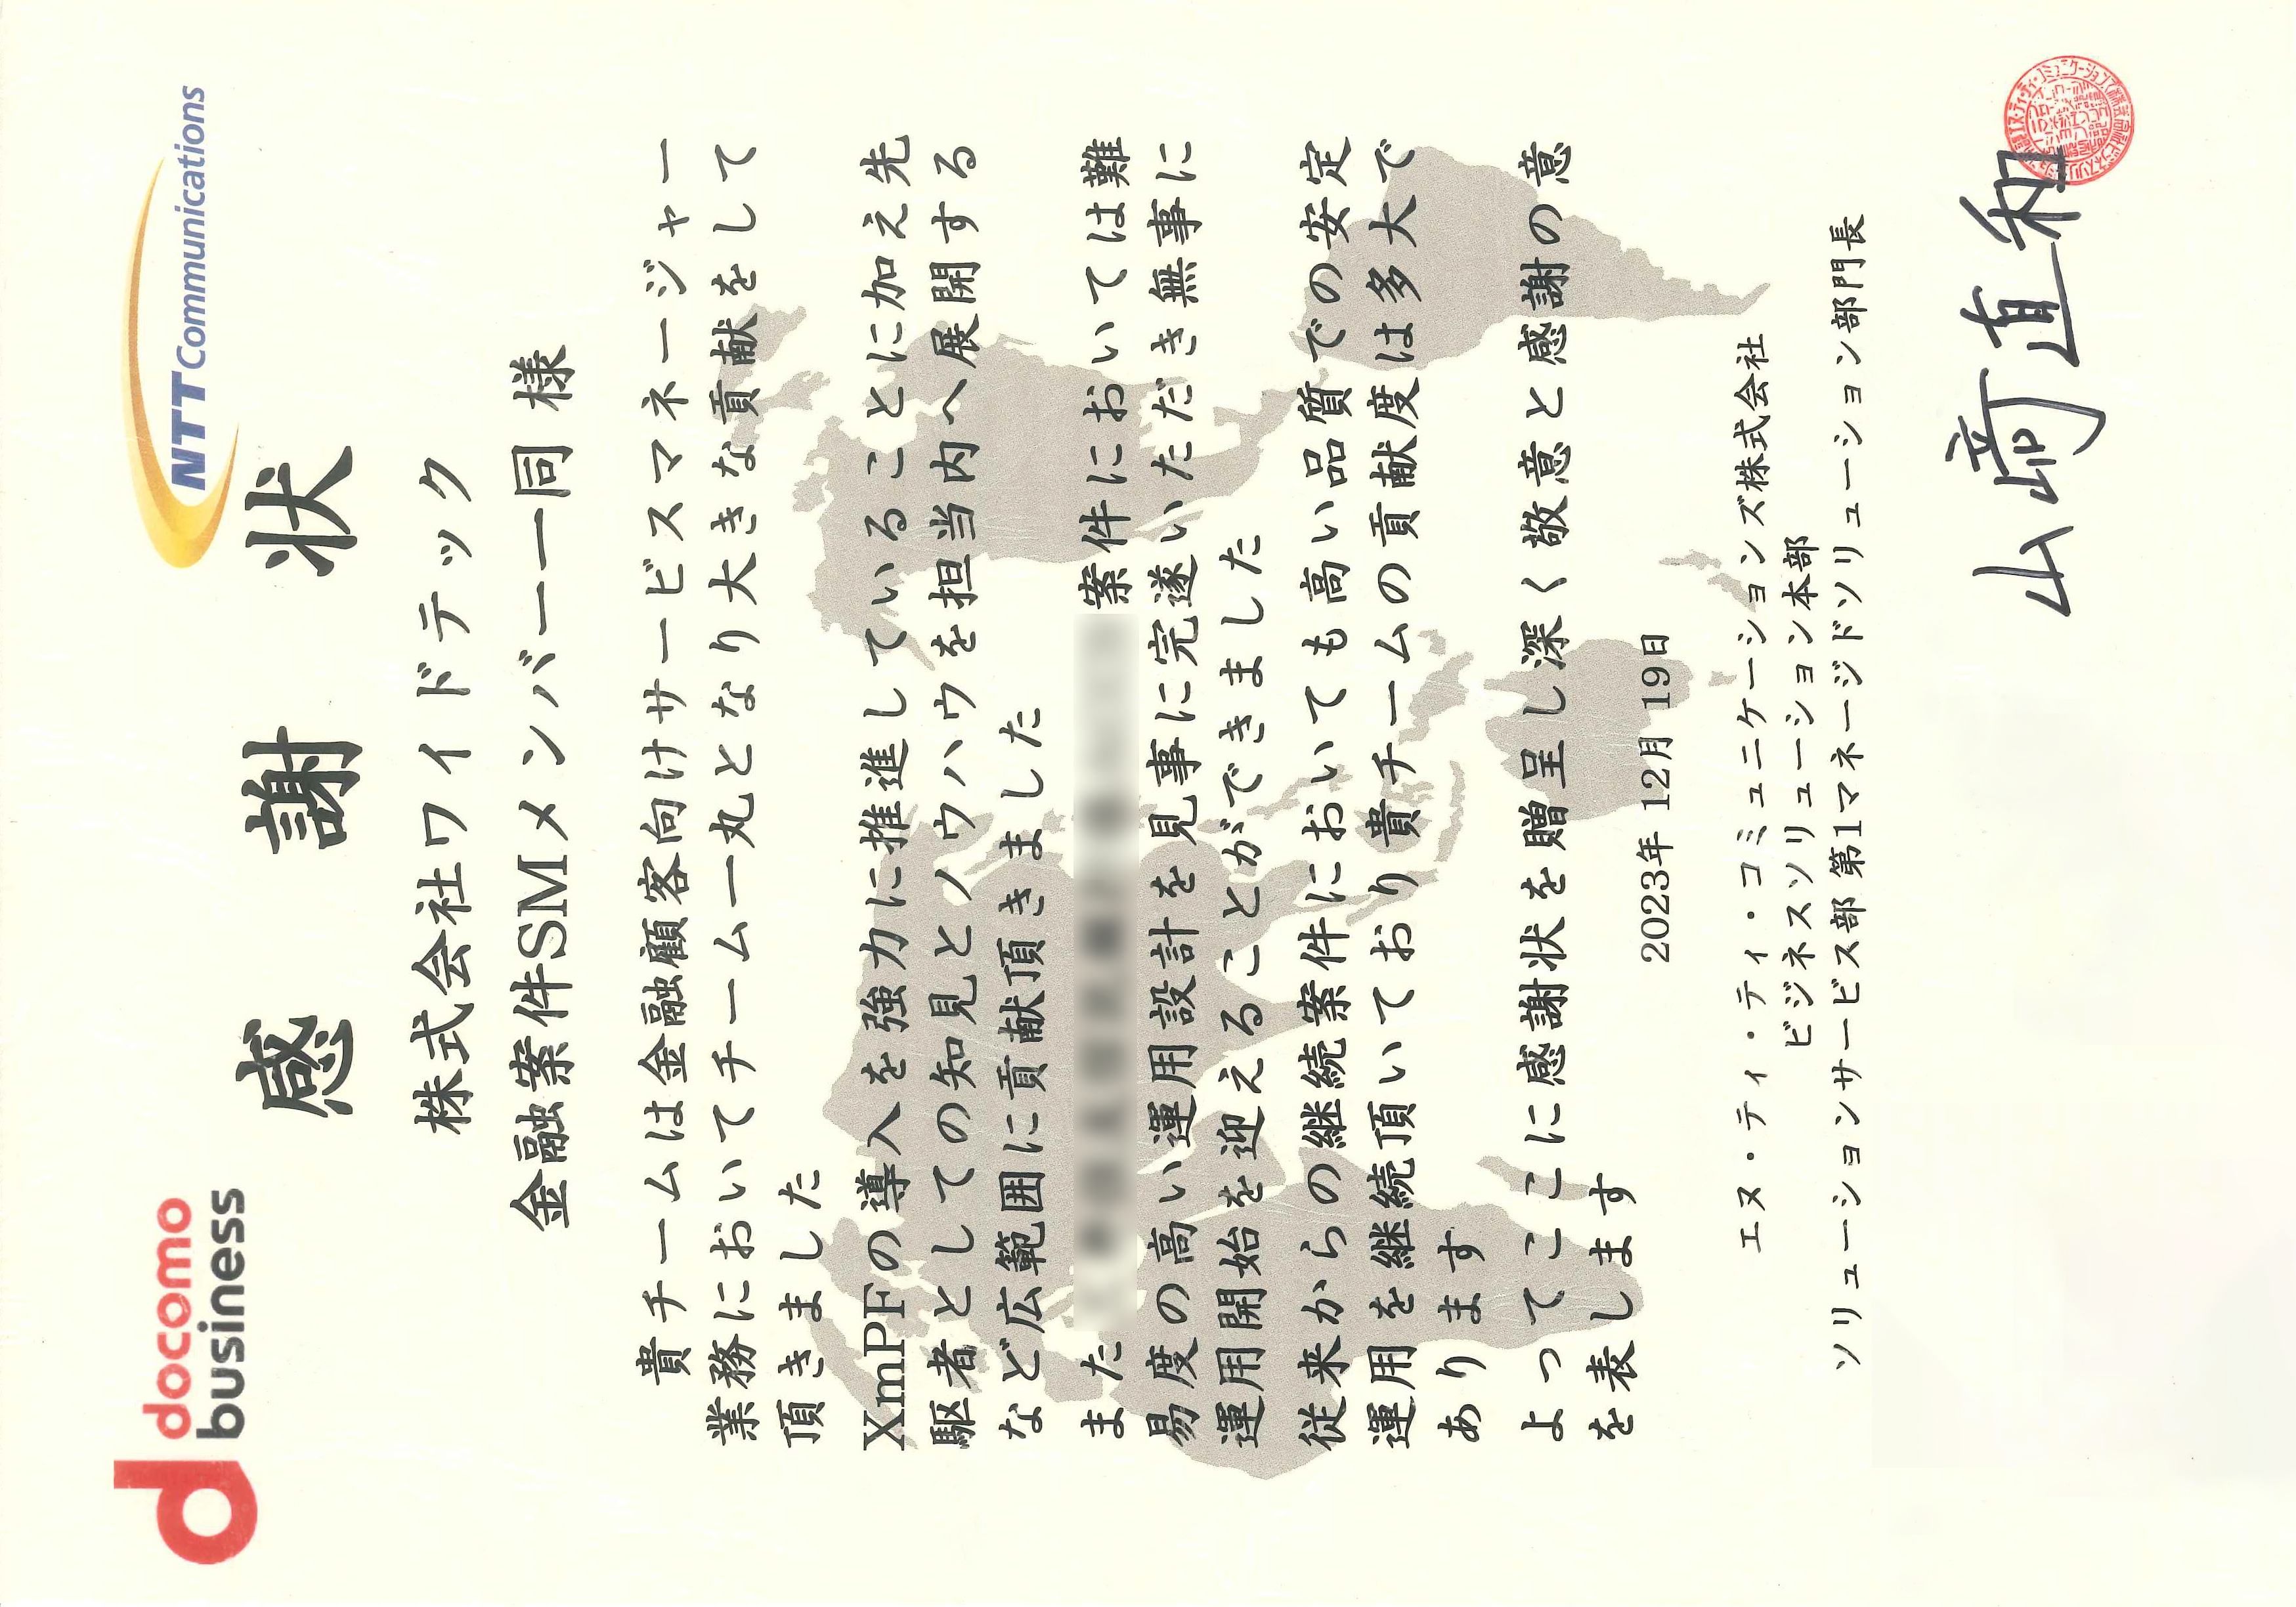 docomo
business
NTT Communications
感謝状
株式会社ワイドテック
金融案件SMメンバー一同 様
貴チームは金融顧客向けサービスマネージャー
業務においてチーム一丸となり大きな貢献をして
頂きました
XmPFの導入を強力に推進していることに加え先
駆者としての知見とノウハウを担当内へ展開する
など広範囲に貢献頂きました
また 案件においては難
易度の高い運用設計を見事に完遂いただき無事に
運用開始を迎えることができました
従来からの継続案件においても高い品質での安定
運用を継続頂いており貴チームの貢献度は多大で
あります
よってここに感謝状を贈呈し深く敬意と感謝の意
を表します
2023年 12月 19日
エヌ・ティ・ティ・コミュニケーションズ株式会社
ビジネスソリューション本部
ソリューションサービス部 第1マネージドソリューション部門長
山﨑直和